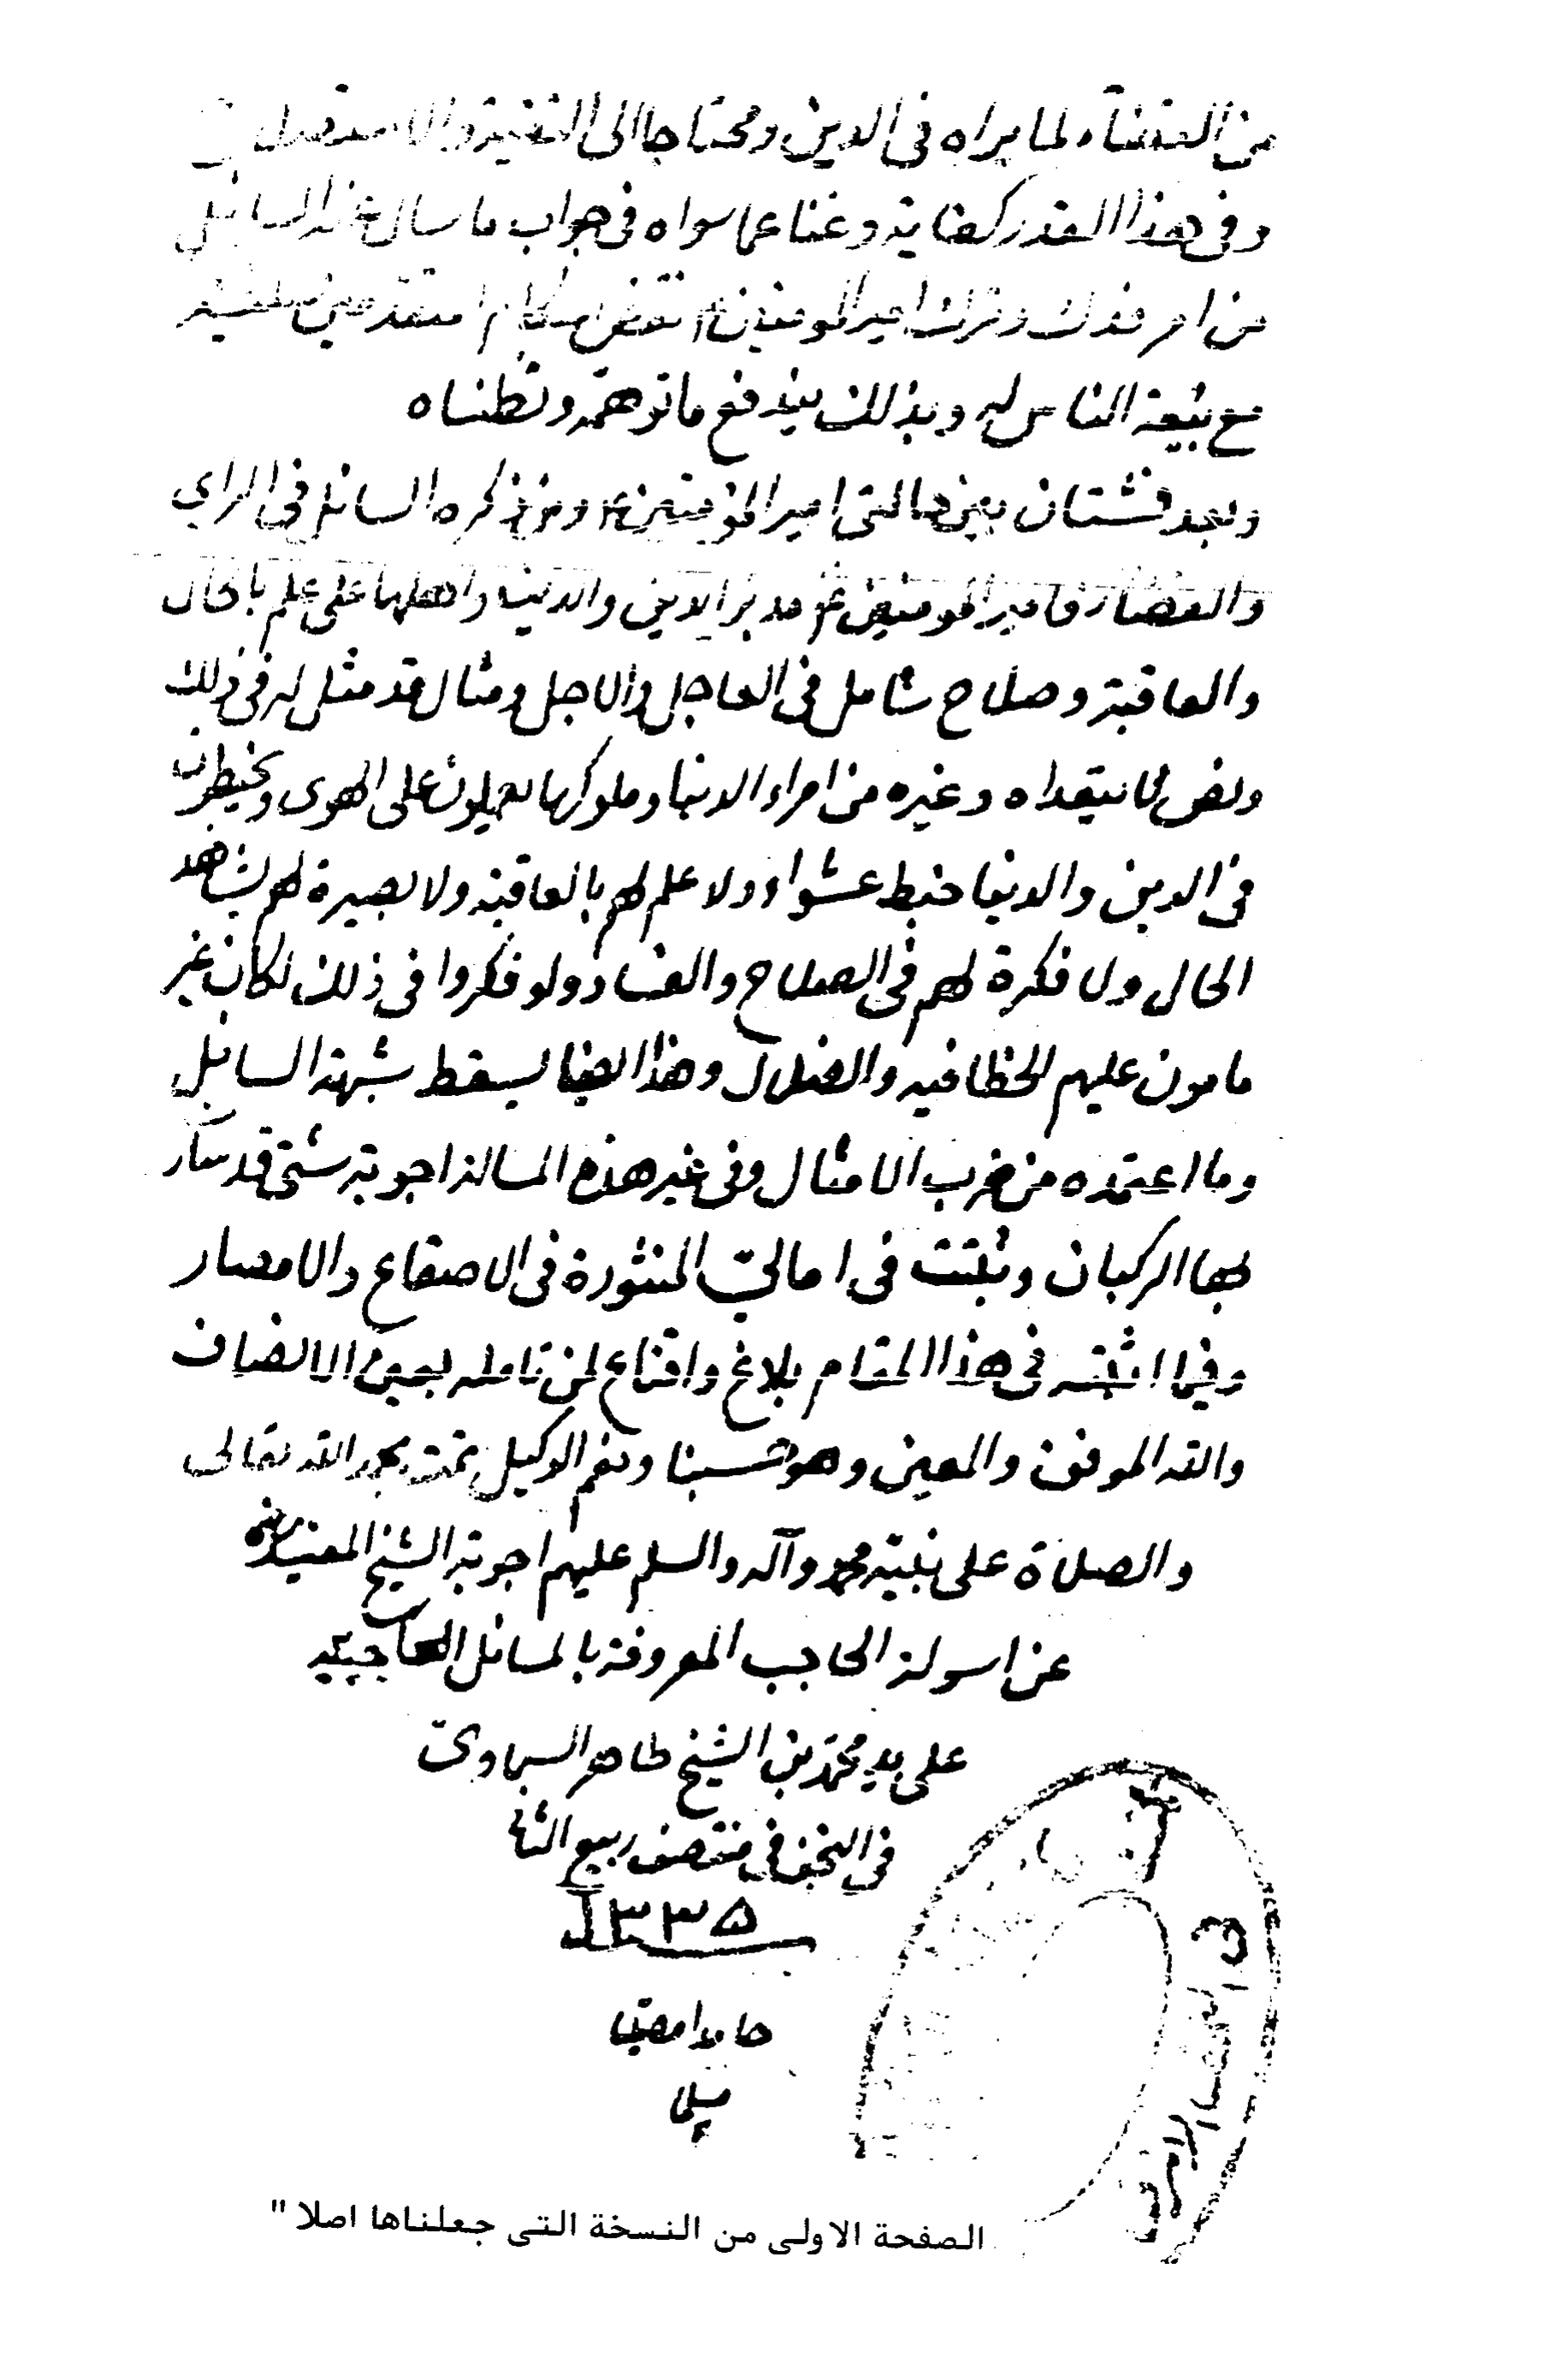 من القضاء لما يراه في الدين ومحتاجا الى التقية والاستصلاح
وفي هذا القدر كفاية وغنا عما سواه في جواب ما سال عنه السائل
من امر فدك وترك امير المومنين ع نقض احكام متقدميه
مع بيعة الناس له وبذلك يندفع ما توهمه وتظناه
وبعد فشتان بين حالتى امير المؤمنين ع ومن ذكره السائل في الراي
والقضاء فامير المومنين ع مدبر الدين والدنيا واهلها على علم بالحال
والعاقبة وصلاح شامل في العاجل والاجل ومثال قد مثل له في ذلك
ونص لا يتعداه وغيره من امراء الدنيا وملوكها يعملون على الهوى ويخبطون
في الدين والدنيا خبط عشواء ولا علم لهم بالعاقبة ولا بصيرة لهم بشاهد
الحال ولا فكرة لهم في الصلاح والفساد ولو فكروا في ذلك لكان غير
مامون عليهم الخطا فيه والضلال وهذا ايضا يسقط شبهة السائل
وما اعتمده من ضرب الامثال وفي غير هذه المسالة اجوبة شتى قد سار
بها الركبان وثبتت في امالي المنثورة في الاصقاع والامصار
وفيما اثبته في هذا المقام بلاغ واقناع لمن تامله بعين الانصاف
والله الموفق والمعين وهو حسبنا ونعم الوكيل تمت بحمد الله تعالى
والصلاة على نبيه محمد وآله والسلم عليهم اجوبة الشيخ المفيد ره
عن اسولة الحاجب المعروفة بالمسائل الحاجبية
على يد محمد بن الشيخ طاهر السماوي
في النجف في منتصف ربيع الثاني
١٣٣٥
حامدا مصليا
مسلما
الصفحة الاولى من النسخة التى جعلناها اصلا "